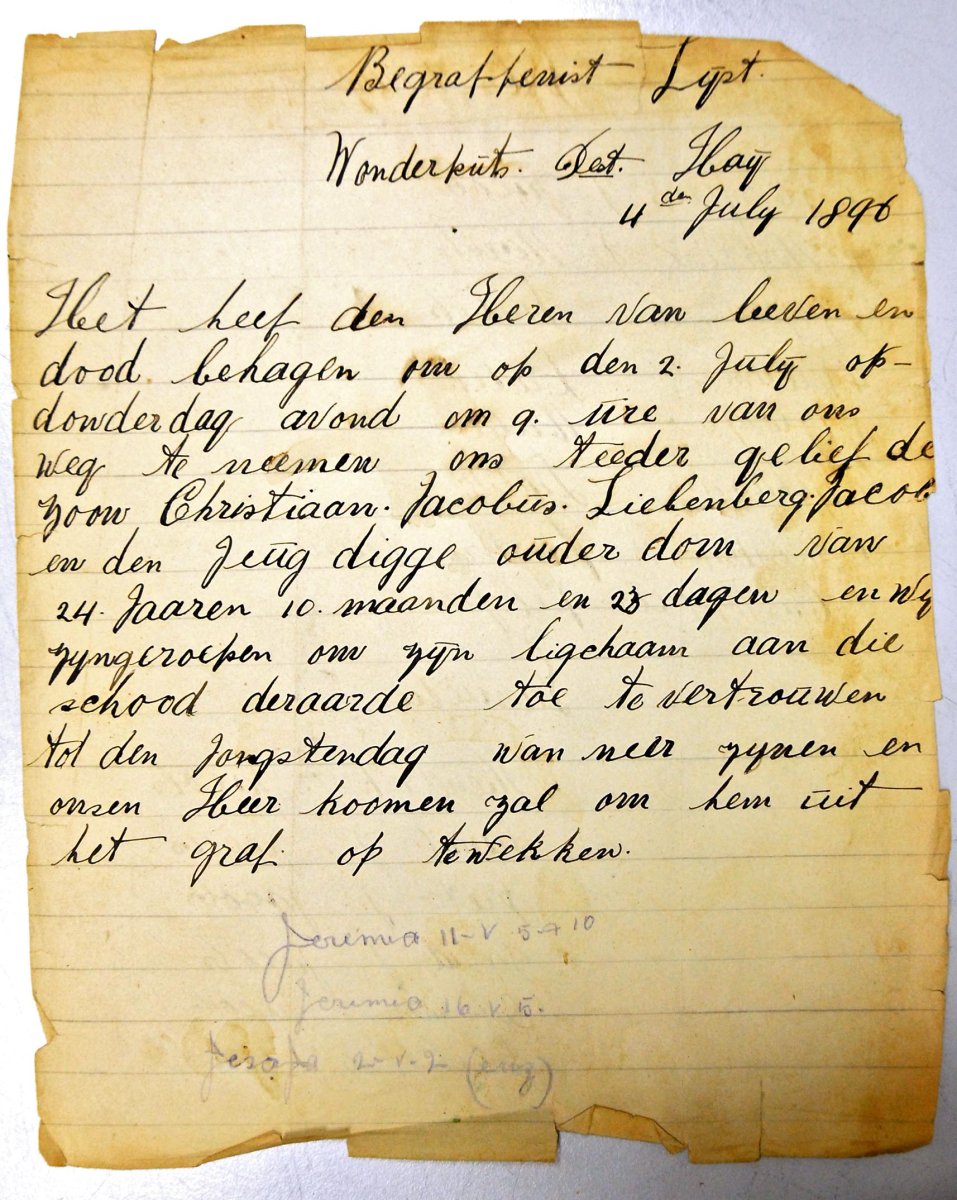 Begraffenist Lijst.
Wonderputs. Dest. Haÿ
4 den July 1896
Het heef den Heren van leeven en
dood behagen om op den 2. Julÿ op-
dowderdag avond om 9. ūre van ons
weg te neemen ons teeder geliefde
zoon Christiaan. Jacobūs. Liebenberg. Jacob
en den Jeūgdigge oūderdom van
24. Jaaren 10. maanden en 23 dagen en wÿ
zÿngeroepen om zÿn ligchaam aan die
schood deraarde toe te vertroūwen
tot den Jongstendag wanneer zynen en
onsen Heer koomen zal om hem ūit
het graf op tewekken.
Jeremia 11-V 5-A 10
Jeremia 16 v 5.
Jesaja 2 v-2 (enz)